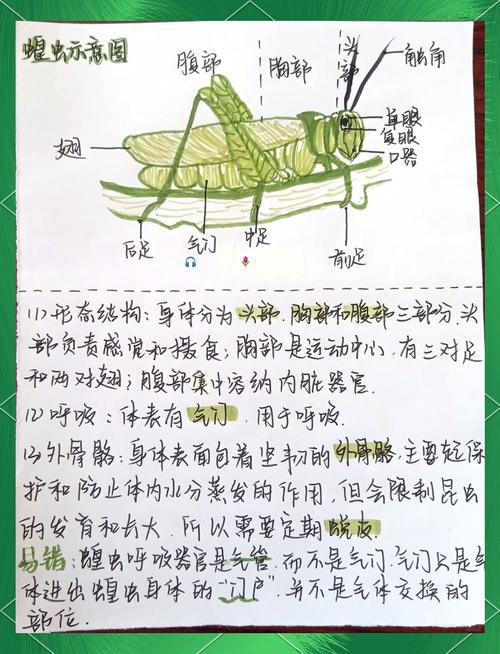 蝗虫示意图
腹部
胸部
头部
触角
单眼
复眼
口器
翅
后足
气门
中足
前足
(1)形态结构:身体分为头部、胸部和腹部三部分.头
部负责感觉和摄食;胸部是运动中心,有三对足
和两对翅;腹部集中容纳内脏器官.
(2)呼吸:体表有气门,用于呼吸.
(3)外骨骼:身体表面包着坚韧的外骨骼,主要起保
护和防止体内水分蒸发的作用,但会限制昆虫
的发育和长大,所以需要定期蜕皮.
易错:蝗虫呼吸器官是气管,而不是气门.气门只是气
体进出蝗虫身体的“门户”,并不是气体交换的
部位.